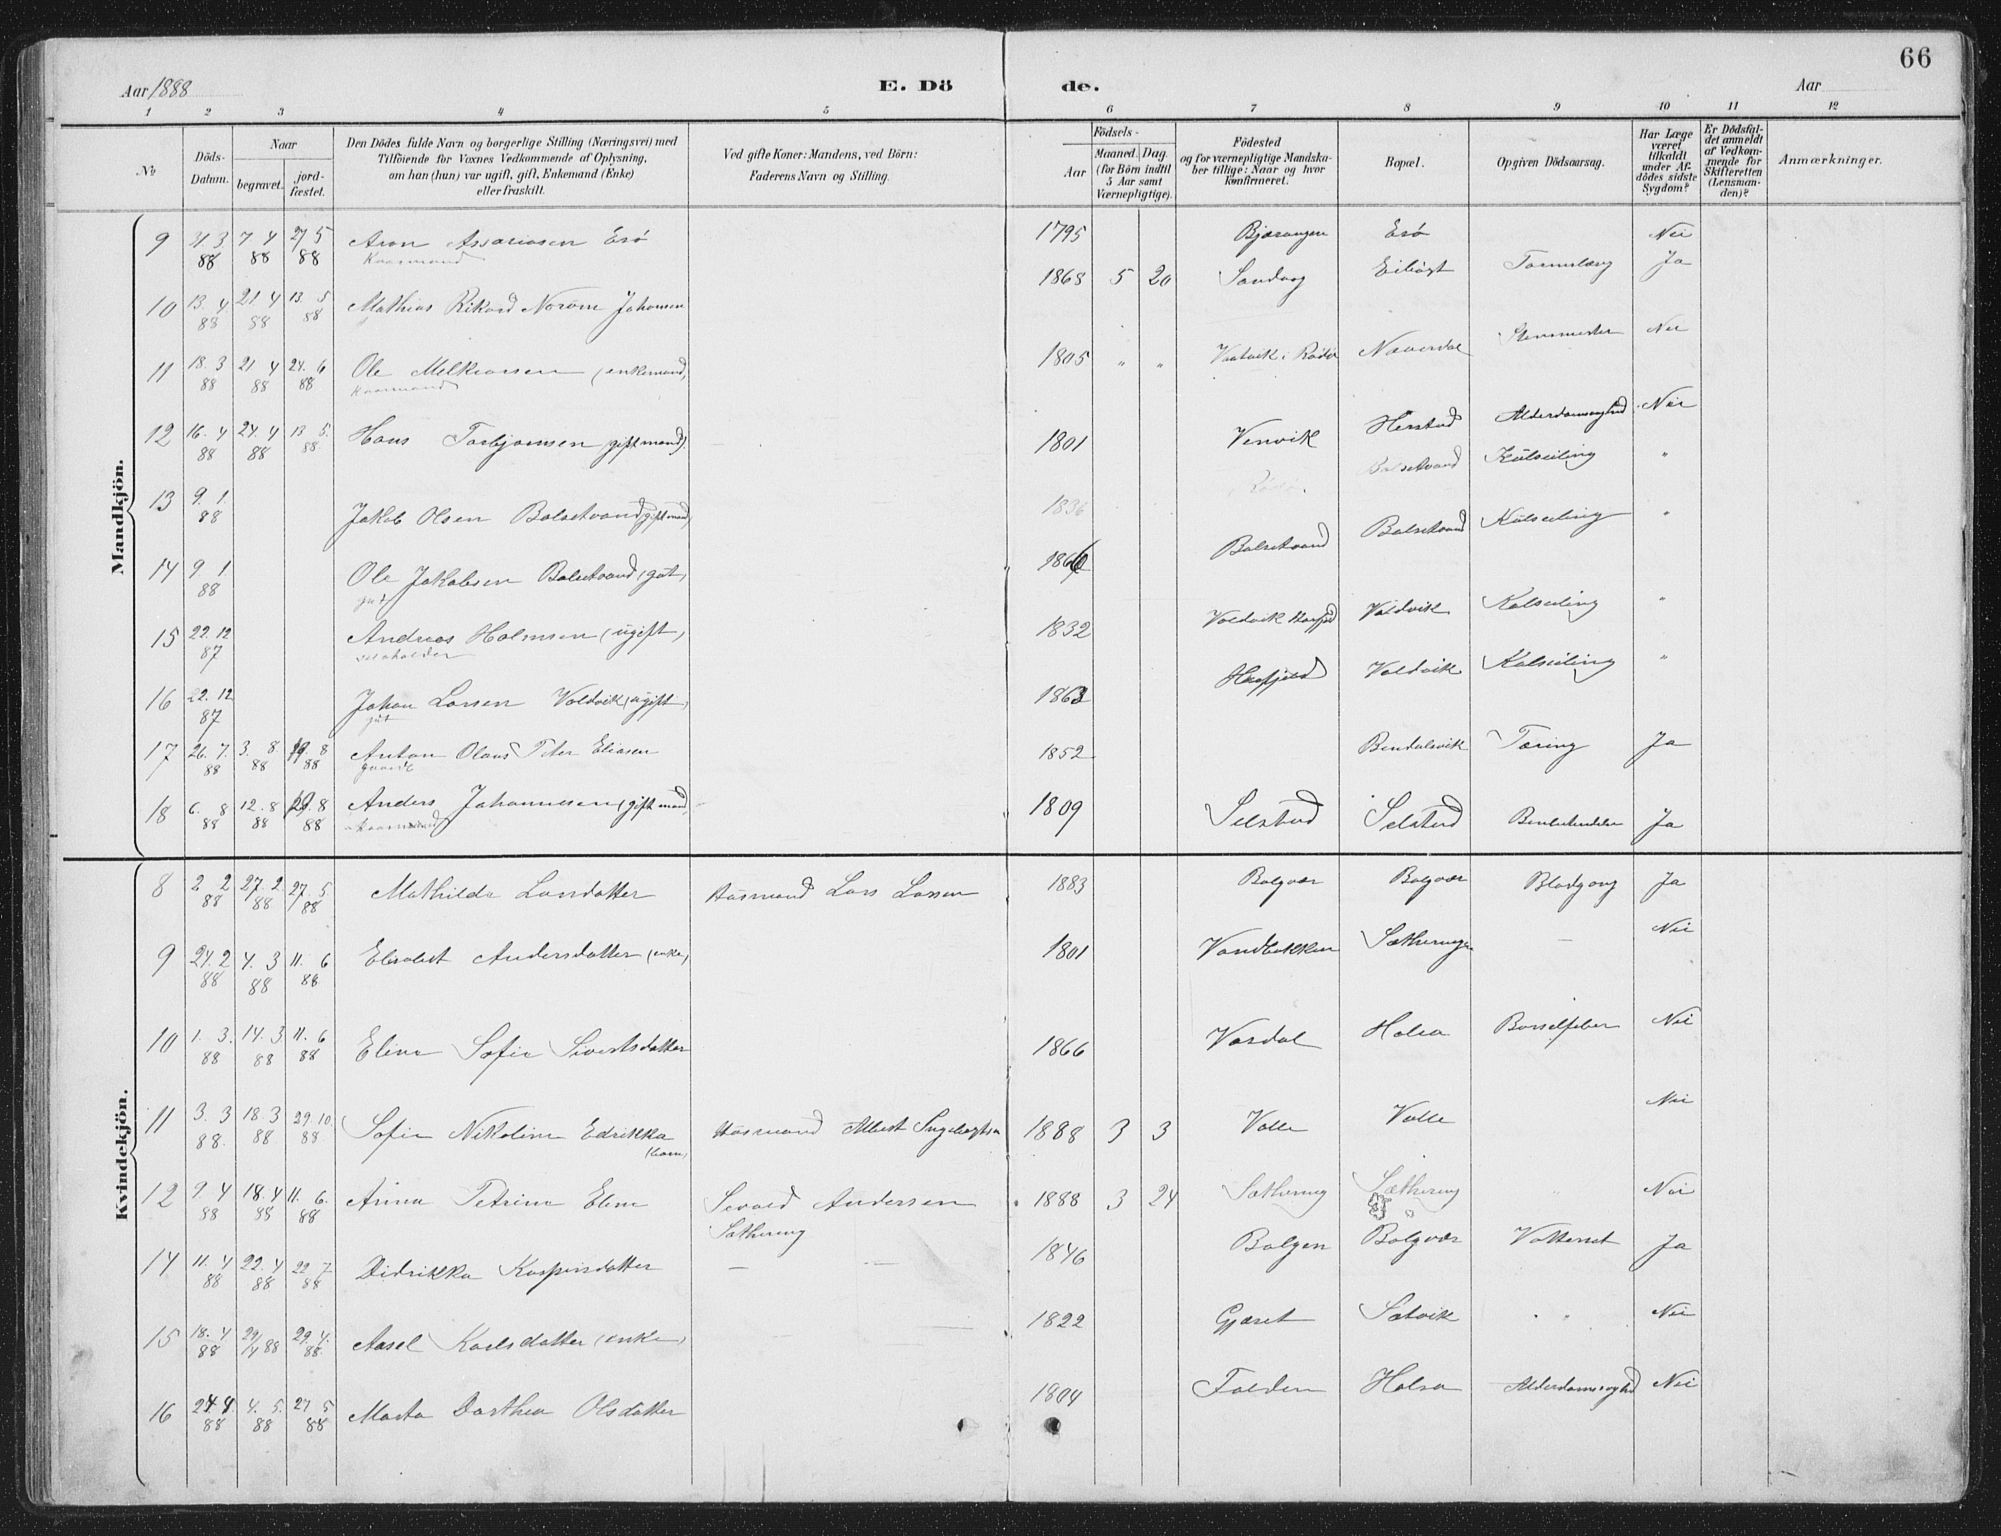 66
Aar 1888
E. Dö
de.
Aar
1 2 3 4 5 6 7 8 9 10 11 12
No
Döds-Datum.
Naar
begravet.
jord-fæstet.
Den Dödes fulde Navn og borgerlige Stilling (Næringsvei) med
Tilföiende for Voxnes Vedkommende af Oplysning,
om han (hun) var ugift, gift, Enkemand (Enke)
eller fraskilt.
Ved gifte Koner: Mandens, ved Börn:
Faderens Navn og Stilling.
Födsels-
Aar
Maaned. Dag.
(for Börn indtil
5 Aar samt
Værnepligtige).
Födested
og for værnepligtige Mandska-
ber tillige: Naar og hvor
konfirmeret.
Bopæl.
Opgiven Dödsaarsag.
Har Læge
været
tilkaldt
under Af-
dödes sidste
Sygdom?
Er Dödsfal-
det anmeldt
af Vedkom-
mende for
Skifteretten
(Lensman-
den)?
Anmærkninger.
Mandkjön.
9 4 3 88 7 4 88 27 5 88 Aron Assariasen Esø 1795 Bjærangen Esø Nei
Kaarmand
10 13 4 88 21 4 88 13 5 88 Mathias Rikard Johansen 1868 5 20 Sandvag Ja
11 18 3 88 21 4 88 24. 6 88 Ole Melkiorsen (enkemand) 1805 " " i Rødø Næverdal Nei
Kaarmand
12 16. 4 88 24. 4 88 13 5. 88 Hans Torbjørnsen (gift mand) 1801 Venvik Herstad Alderdomssvaghed Nei
13 9. 1. 88 Jakob Olsen Balsetvand (gift mand) 1836 Rødø Balsetvand Kulseiling "
14 9 1 88 Ole Jakobsen Balsetvand (gut) 1866 Balsetvand Balsetvand Kulseiling "
gut
15 22. 12 87 Andreas Holmsen (ugift) 1832 Voldvik Voldvik Kulseiling "
16 22. 12 87 Johan Larsen Voldvik (ugift) 1863 Voldvik Kulseiling "
gut
17 26. 7. 88 3. 8 88 19. 8 88 Anton Olaus Peter Eliasen 1852 Bendalsvik Tæring Ja
18 6. 8 88 12. 8 88 19. 8 88 Anders Johannesen (gift mand) 1809 Selstad Selstad Ja
Kaarmand
Kvindekjön.
8 2 2 88 27. 2. 88 27. 5 88 Mathilde Larsdatter Husmand Lars Larsen 1883 Bolgvær Bolgvær Blodgang Ja
9 24. 2 88 4. 3 88 11. 6 88 Elisabet Andersdatter (enke) 1801 Vandbakken – Nei
10 1. 3. 88 14. 3 88 11. 6 88 Eline Sofie Sivertsdatter 1866 Vasdal Halsa Barselfeber Nei
11 3. 3 88. 18. 3 88 29. 10. 88 Sofie Nikoline Edrikka Husmand Albert Ingebrigtsen 1888 3 3 Valle Valle Nei
(barn)
12 9. 4 88 18. 4 88 11. 6. 88 Anna Petrine Eline Sevald Andersen 1888 3 24 Sæthering Sæthering " Nei
Sæthering
14 11. 4 88 22. 4 88 22. 7 88 Didrikka Kaspersdatter – – 1846 Bolgen Bolgvær Vattersot Ja
15 18. 4 88 29/4 88 29. 4. 88. Aasel Karlsdatter (enke) 1822 Gjæset Sætvik " " Nei
16 24 4 88 4. 5. 88 27 5 88 Marta Dorthea Olsdatter 1804 Folden Halsa Alderdomssvaghed Nei